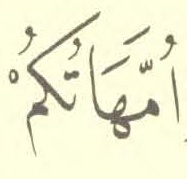 اُمَّهَاتُكُمُْ